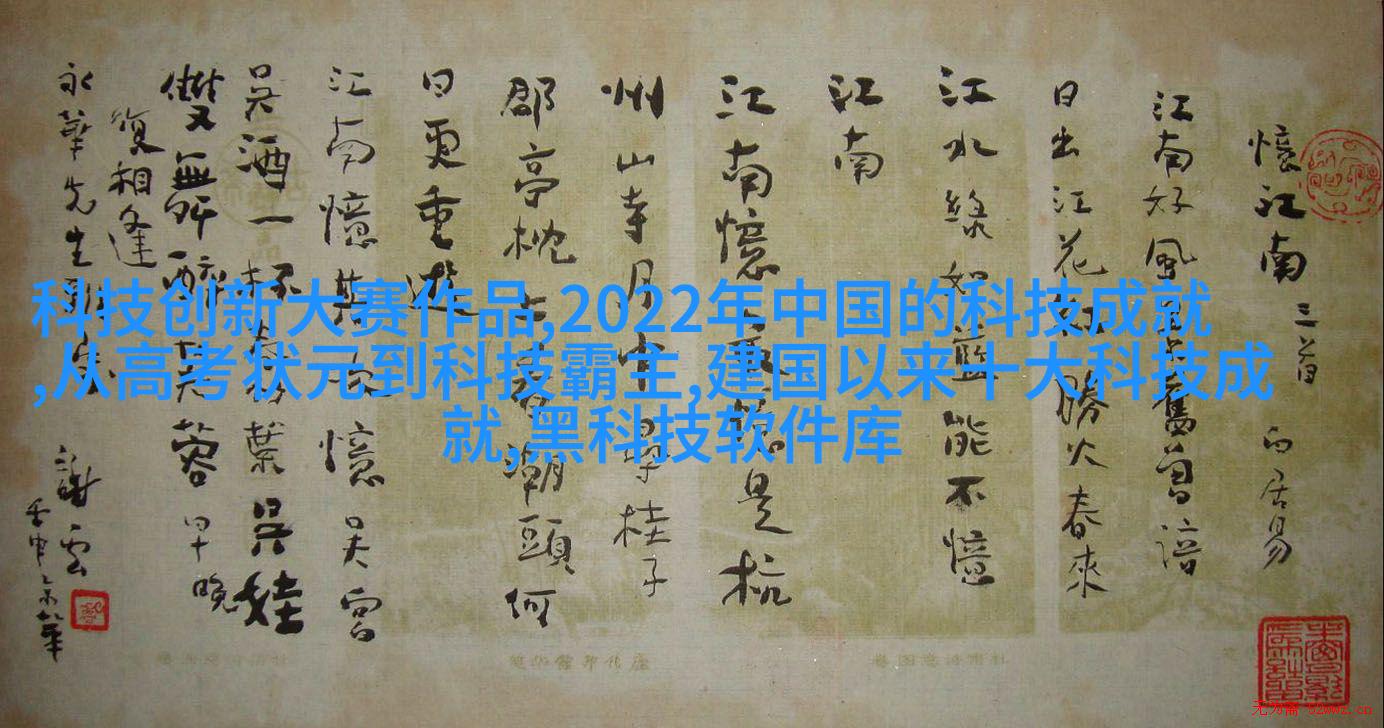 憶江南 三首 白居易
江南好風景舊曾諳
日出江花紅勝火春來
江水綠如藍能不憶
江南
江南憶最憶是杭
州山寺月中尋桂子
郡亭枕上看潮頭何
日更重遊
江南憶其次憶吳宮
吳酒一杯春竹葉吳娃
雙舞醉芙蓉早晚
復相逢
永華先生
謝雲
科技创新大赛作品,2022年中国的科技成就
,从高考状元到科技霸主,建国以来十大科技成
就,黑科技软件库